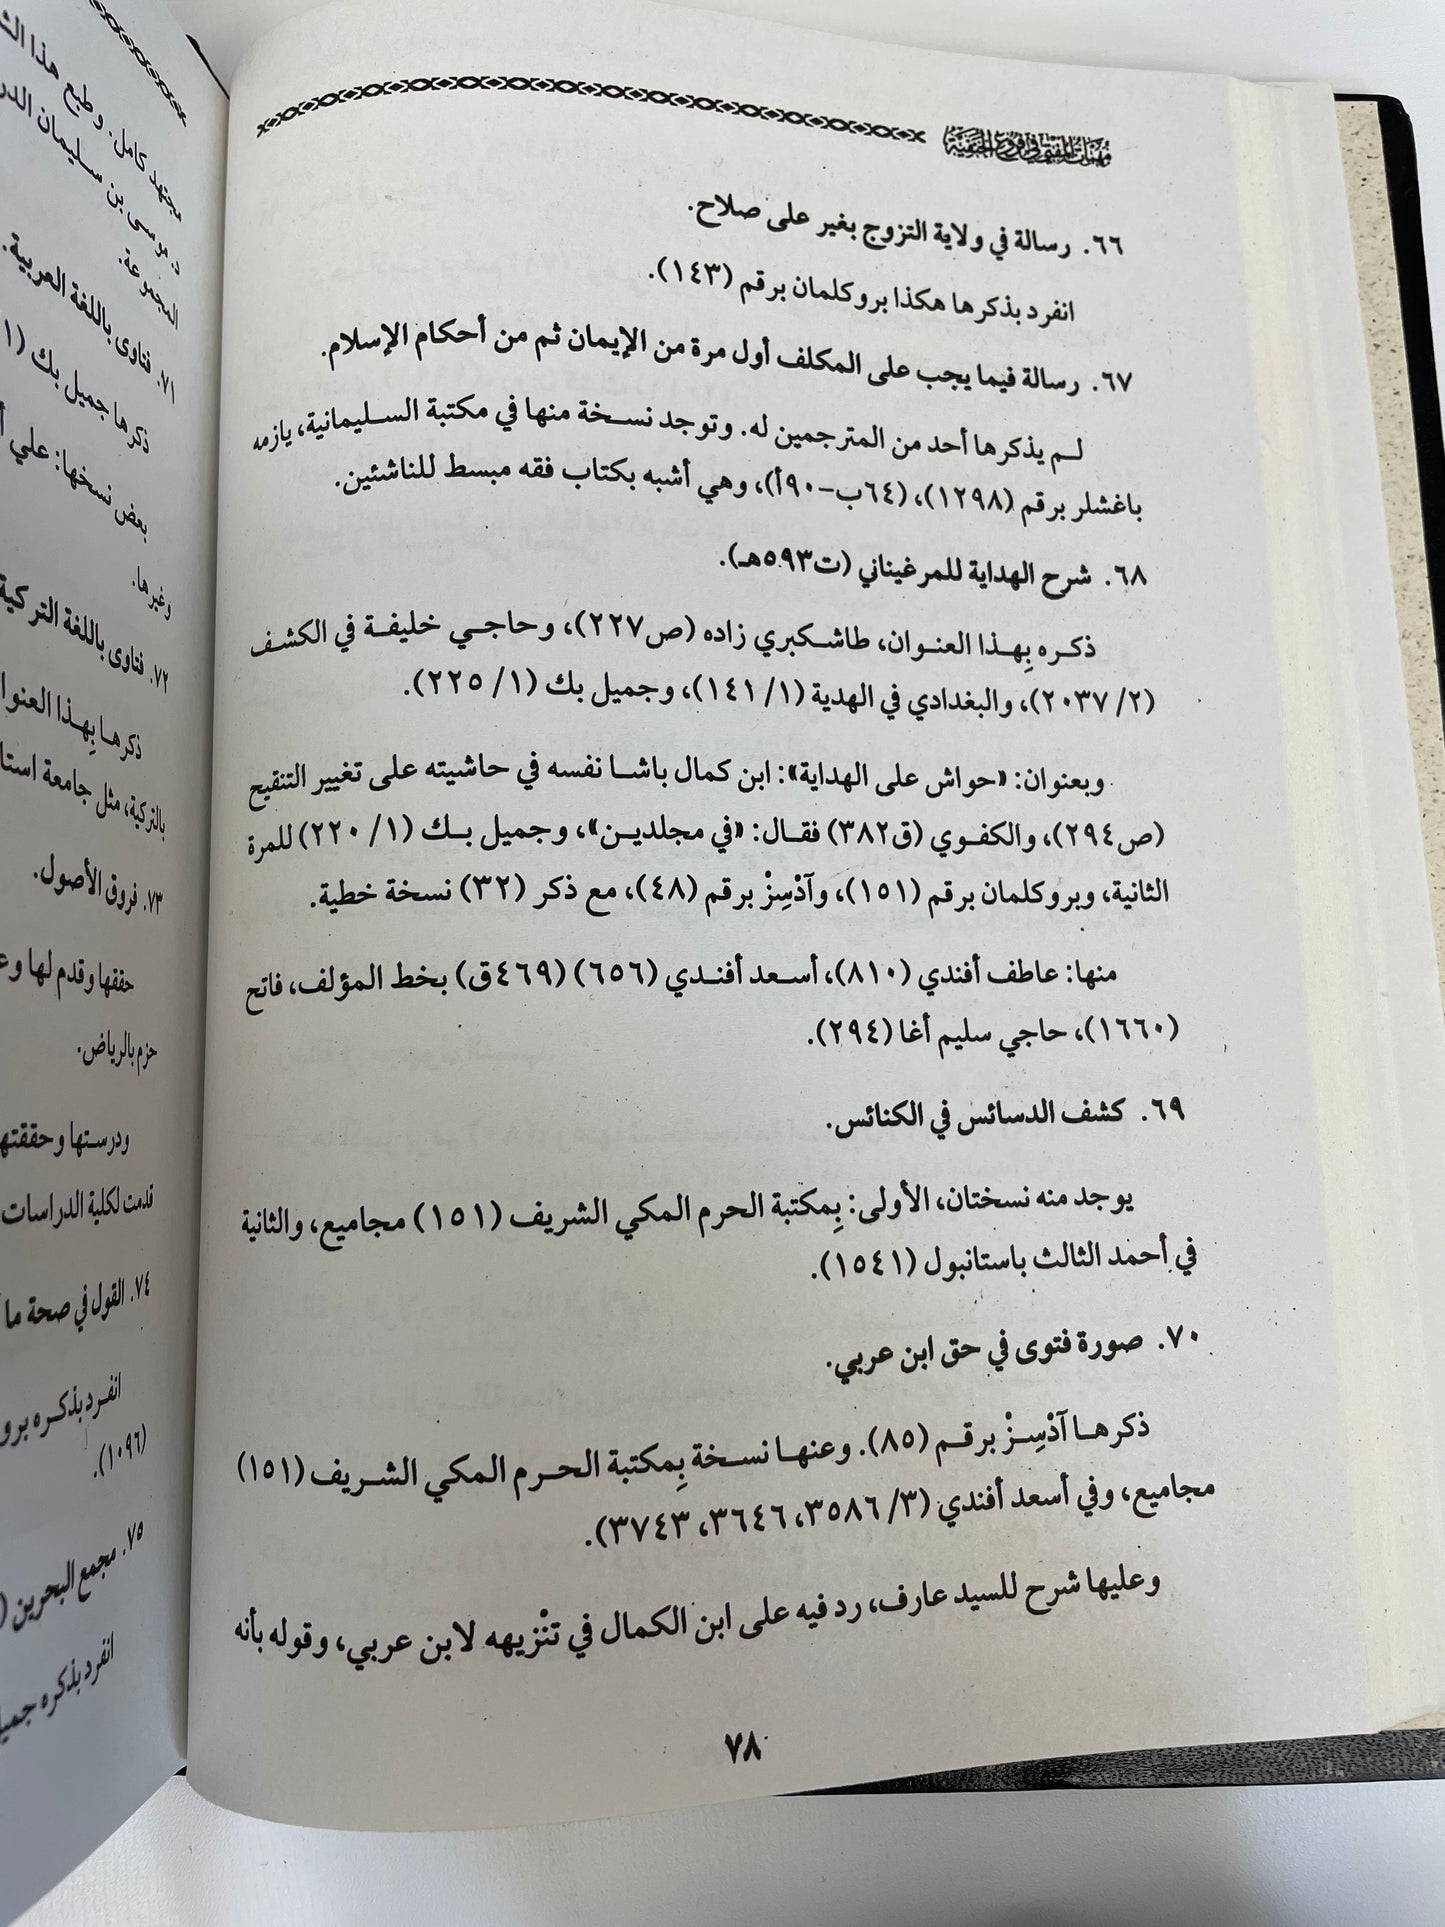 مهمات المفتي في فروع الحنفية
٦٦. رسالة في ولاية التزوج بغير على صلاح.
انفرد بذكرها هكذا بروكلمان برقم (١٤٣).
٦٧. رسالة فيما يجب على المكلف أول مرة من الإيمان ثم من أحكام الإسلام.
لم يذكرها أحد من المترجمين له. وتوجد نسخة منها في مكتبة السليمانية، يازمه
باغشلر برقم (١٢٩٨)، (٦٤ب-٩٠أ)، وهي أشبه بكتاب فقه مبسط للناشئين.
٦٨. شرح الهداية للمرغيناني (ت٥٩٣هـ).
ذكره بِهذا العنوان، طاشكبري زاده (ص٢٢٧)، وحاجي خليفة في الكشف
(٢/ ٢٠٣٧)، والبغدادي في الهدية (١/ ١٤١)، وجميل بك (١/ ٢٢٥).
وبعنوان: «حواش على الهداية»: ابن كمال باشا نفسه في حاشيته على تغيير التنقيح
(ص٢٩٤)، والكفوي (ق٣٨٢) فقال: «في مجلدين»، وجميل بك (١/ ٢٢٠) للمرة
الثانية، وبروكلمان برقم (١٥١)، وآدْسِزْ برقم (٤٨)، مع ذكر (٣٢) نسخة خطية.
منها: عاطف أفندي (٨١٠)، أسعد أفندي (٦٥٦) (٤٦٩ق) بخط المؤلف، فاتح
(١٦٦٠)، حاجي سليم أغا (٢٩٤).
٦٩. كشف الدسائس في الكنائس.
يوجد منه نسختان، الأولى: بِمكتبة الحرم المكي الشريف (١٥١) مجاميع، والثانية
في أحمد الثالث باستانبول (١٥٤١).
٧٠. صورة فتوى في حق ابن عربي.
ذكرها آدْسِزْ برقم (٨٥). وعنها نسخة بِمكتبة الحرم المكي الشريف (١٥١)
مجاميع، وفي أسعد أفندي (٣/ ٣٥٨٦، ٣٦٤٦، ٣٧٤٣).
وعليها شرح للسيد عارف، رد فيه على ابن الكمال في تنْزيهه لابن عربي، وقوله بأنه
٧٨
مجتهد كامل. وطبع هذا
د. موسى بن سليمان
المجموعة.
٧١. فتاوى باللغة العربية.
ذكرها جميل بك (١
بعض نسخها: علي
وغيرها.
٧٢. فتاوى باللغة التركية
ذكرها بِهذا
بالتركية، مثل جامعة
٧٣. فروق الأصول.
حققها وقدم لها
حزم بالرياض.
ودرستها وحققتها
قدمت لكلية الدراسات
٧٤. القول في صحة ما
انفرد بذكره
(١٠٩٦).
٧٥. مجمع البحرين (
انفرد بذكره